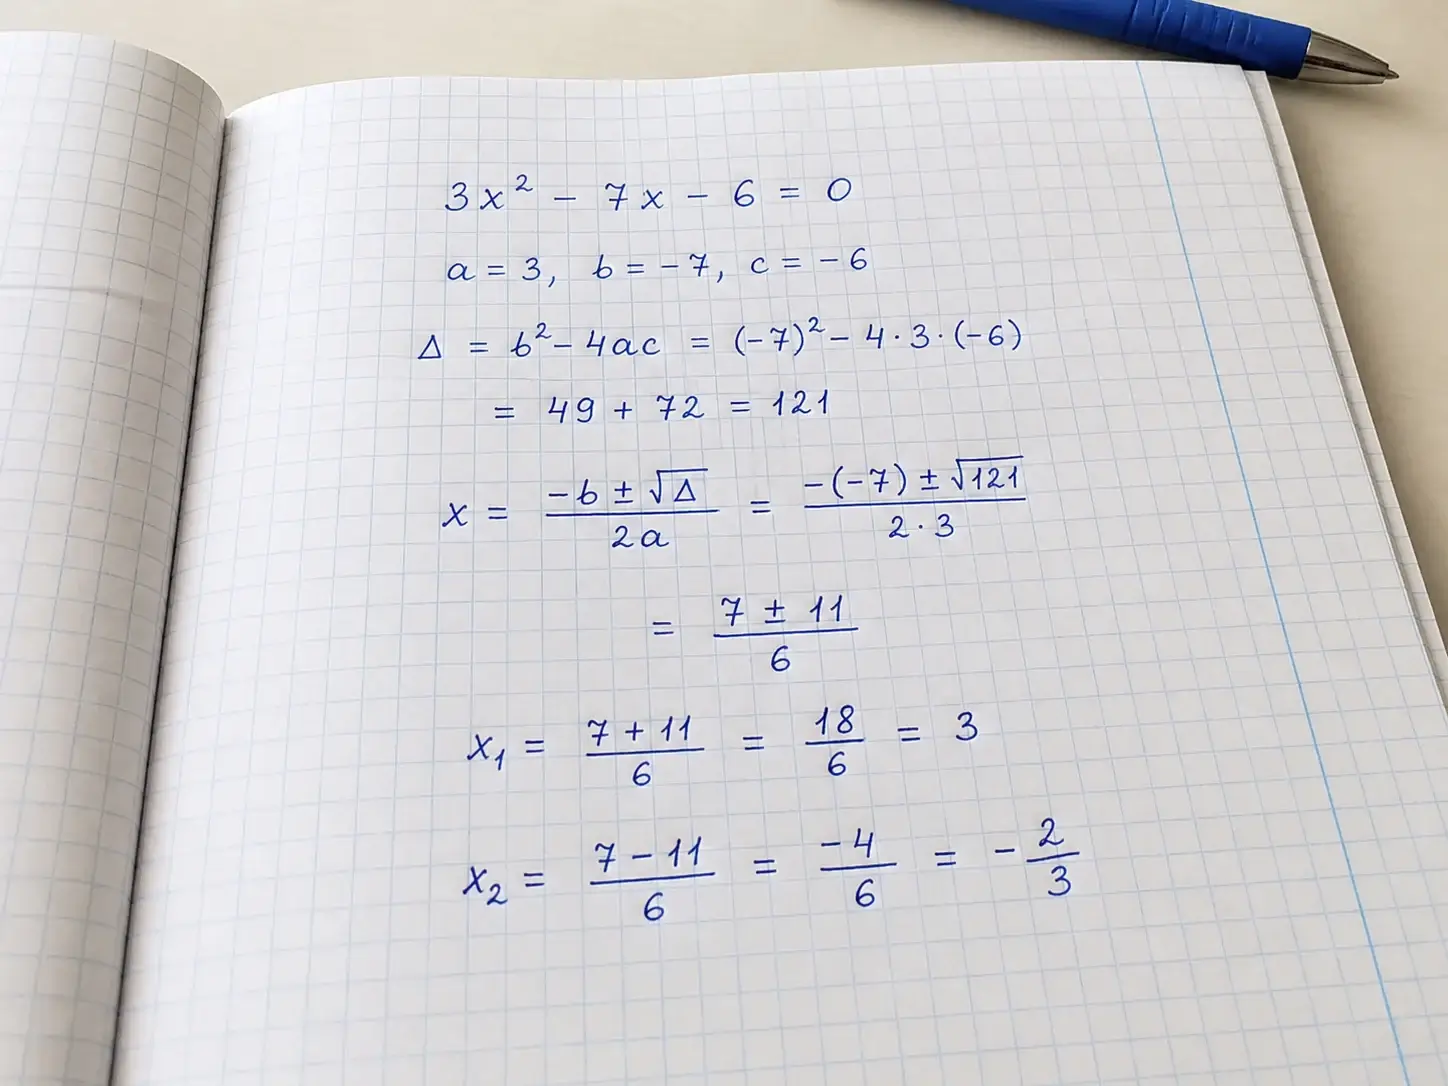 3x² - 7x - 6 = 0
a = 3, b = -7, c = -6
Δ = b² - 4ac = (-7)² - 4·3·(-6)
= 49 + 72 = 121
x = (-b ± √Δ)/(2a) = (-(-7) ± √121)/(2·3)
= (7 ± 11)/6
x₁ = (7 + 11)/6 = 18/6 = 3
x₂ = (7 - 11)/6 = -4/6 = -2/3